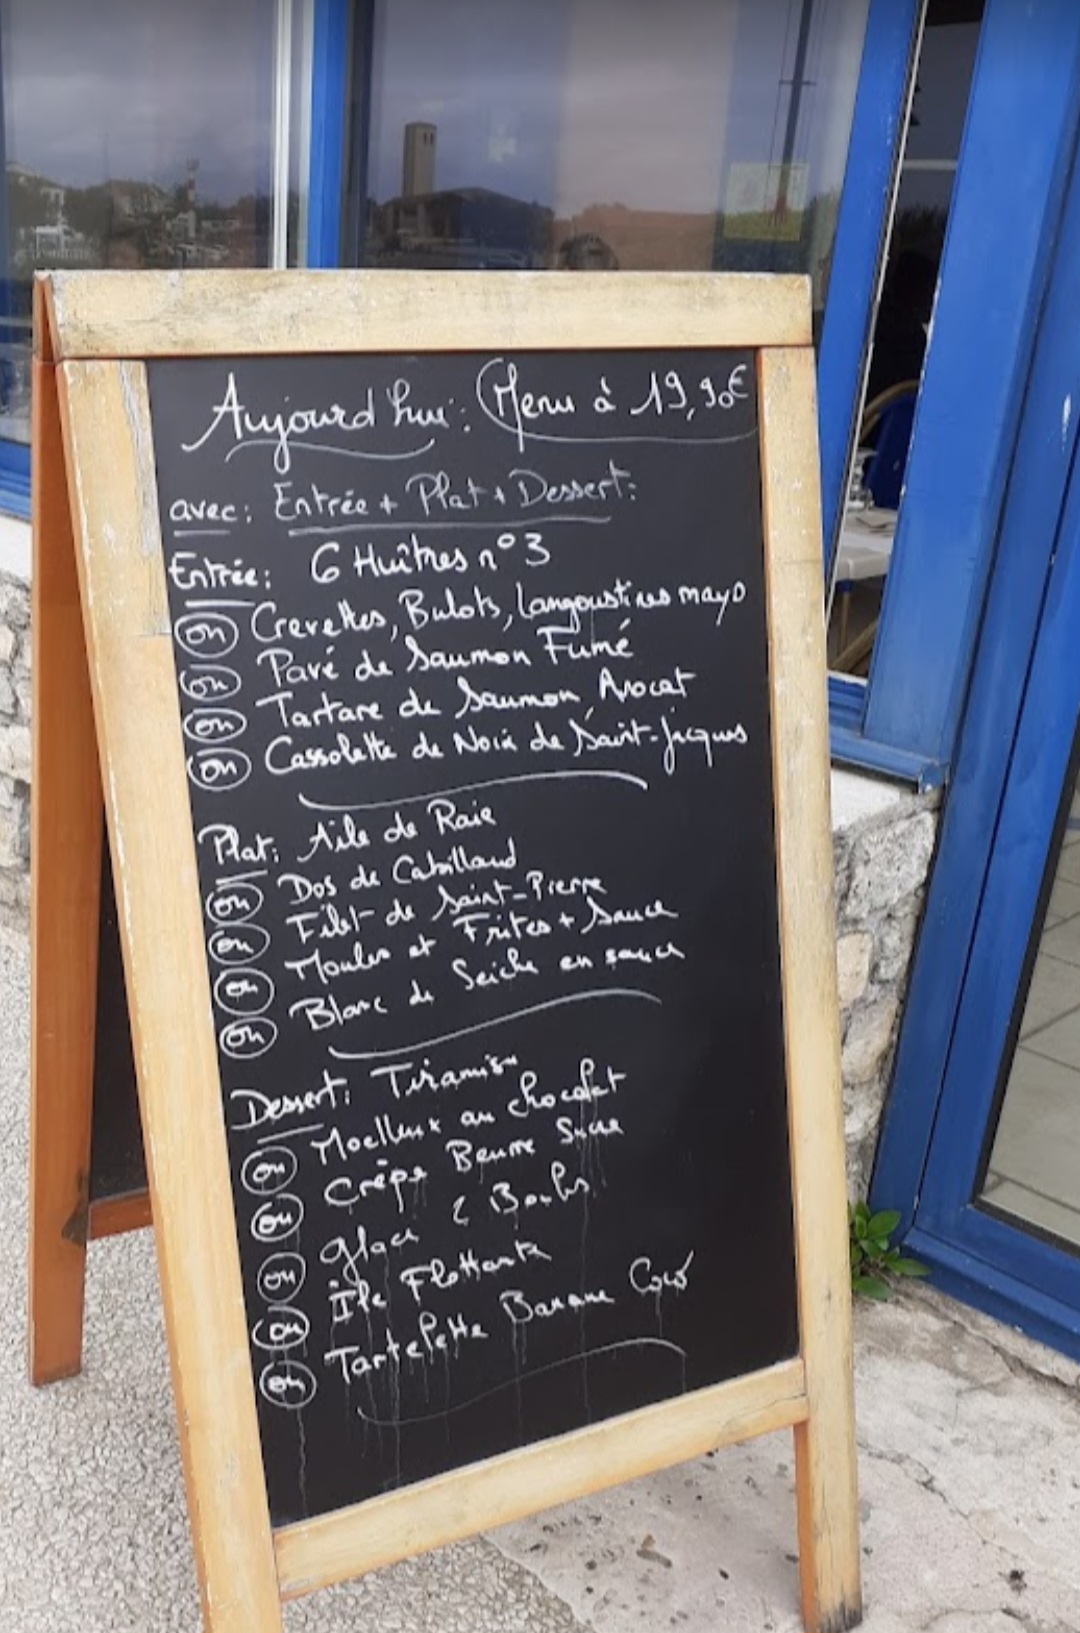 Aujourd'hui: Menu à 19,90€
avec: Entrée + Plat + Dessert:
Entrée: 6 Huîtres n°3
ou Crevettes, Bulots, Langoustines mayo
ou Pavé de Saumon Fumé
ou Tartare de Saumon, Avocat
ou Cassolette de Noix de Saint-Jacques
Plat: Aile de Raie
ou Dos de Cabillaud
ou Filet de Saint-Pierre
ou Moules et Frites + Sauce
ou Blanc de Seiche en sauce
Dessert: Tiramisu
ou Moelleux au chocolat
ou Crêpe Beurre Sucre
ou Glace 2 Boules
ou Île Flottante
ou Tartelette Banane Coco